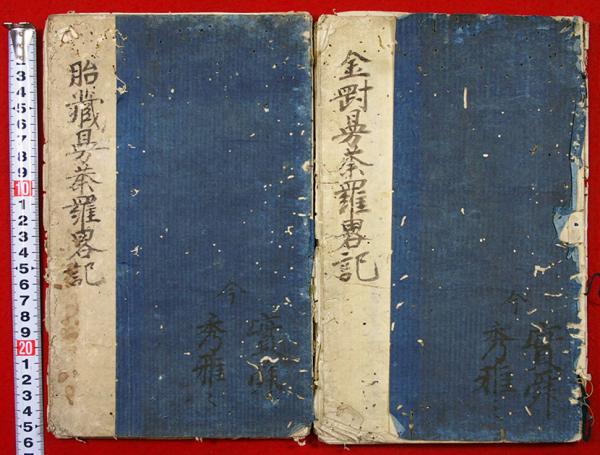 金剛曼荼羅畧記
今
秀雅
胎藏曼荼羅畧記
今
秀雅
3
4
5
6
7
8
9
10
1
2
3
4
5
6
7
8
9
20
1
2
3
4
5
6